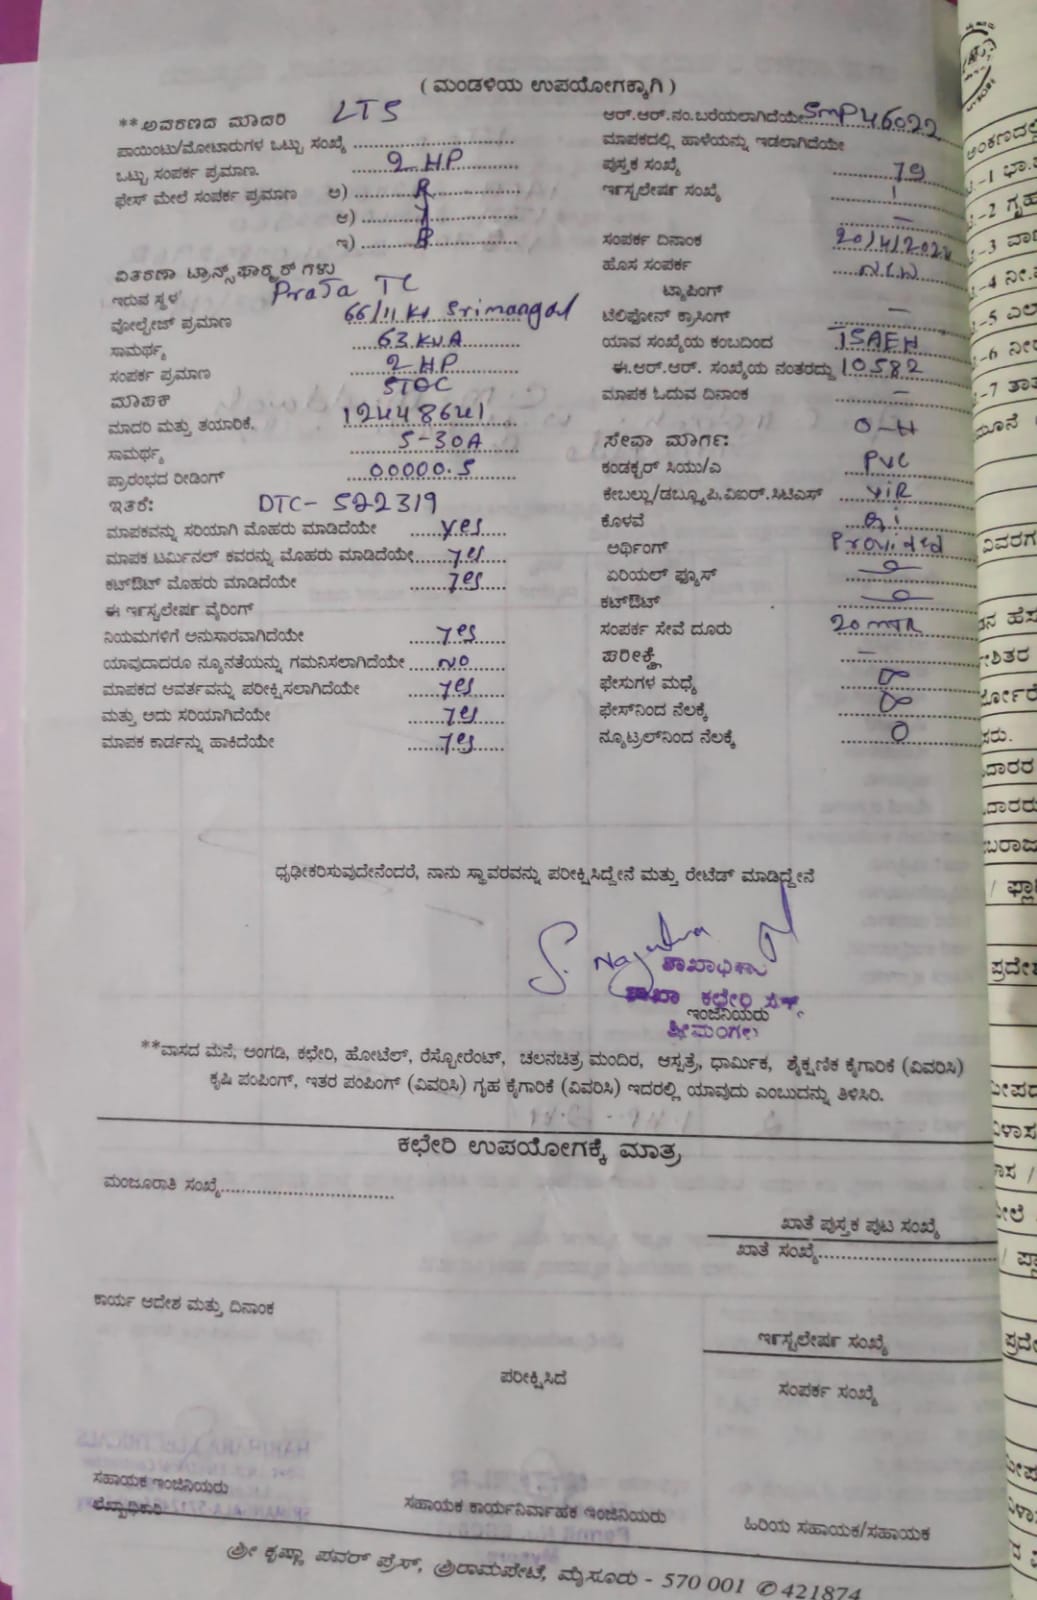 ( ಮಂಡಳಿಯ ಉಪಯೋಗಕ್ಕಾಗಿ )
**ಅವಕರಣದ ಮಾದರಿ LT5
ಪಾಯಿಂಟು/ಮೋಟಾರುಗಳ ಒಟ್ಟು ಸಂಖ್ಯೆ
ಒಟ್ಟು ಸಂಪರ್ಕ ಪ್ರಮಾಣ. 2 HP
ಫೇಸ್ ಮೇಲೆ ಸಂಪರ್ಕ ಪ್ರಮಾಣ ಅ) R
ಆ) Y
ಇ) B
ವಿತರಣಾ ಟ್ರಾನ್ಸ್‌ಫಾರ್‍ಮರ್ ಗಳು
ಇರುವ ಸ್ಥಳ Praja TC
ವೋಲ್ಟೇಜ್ ಪ್ರಮಾಣ 66/11 KV Srimangal
ಸಾಮರ್ಥ್ಯ 63 KVA
ಸಂಪರ್ಕ ಪ್ರಮಾಣ 2 HP
ಮಾಪಕ
ಮಾದರಿ ಮತ್ತು ತಯಾರಿಕೆ. 12448641
ಸಾಮರ್ಥ್ಯ 5-30A
ಪ್ರಾರಂಭದ ರೀಡಿಂಗ್ 00000.5
ಇತರೆ: DTC- 522319
ಮಾಪಕವನ್ನು ಸರಿಯಾಗಿ ಮೊಹರು ಮಾಡಿದೆಯೇ yes
ಮಾಪಕ ಟರ್ಮಿನಲ್ ಕವರನ್ನು ಮೊಹರು ಮಾಡಿದೆಯೇ yes
ಕಟ್‌ಔಟ್ ಮೊಹರು ಮಾಡಿದೆಯೇ yes
ಈ ಇನ್‌ಸ್ಟಲೇಷನ್ ವೈರಿಂಗ್
ನಿಯಮಗಳಿಗೆ ಅನುಸಾರವಾಗಿದೆಯೇ yes
ಯಾವುದಾದರೂ ನ್ಯೂನತೆಯನ್ನು ಗಮನಿಸಲಾಗಿದೆಯೇ NO
ಮಾಪಕದ ಆವರ್ತವನ್ನು ಪರೀಕ್ಷಿಸಲಾಗಿದೆಯೇ yes
ಮತ್ತು ಅದು ಸರಿಯಾಗಿದೆಯೇ yes
ಮಾಪಕ ಕಾರ್ಡನ್ನು ಹಾಕಿದೆಯೇ yes
ಆರ್.ಆರ್.ನಂ.ಬರೆಯಲಾಗಿದೆಯೇ SMP46022
ಮಾಪಕದಲ್ಲಿ ಹಾಳೆಯನ್ನು ಇಡಲಾಗಿದೆಯೇ
ಪುಸ್ತಕ ಸಂಖ್ಯೆ 79
ಇನ್‌ಸ್ಟಲೇಷನ್ ಸಂಖ್ಯೆ 1
ಸಂಪರ್ಕ ದಿನಾಂಕ 20/4/202
ಹೊಸ ಸಂಪರ್ಕ New
ಟ್ಯಾಪಿಂಗ್
ಟೆಲಿಫೋನ್ ಕ್ರಾಸಿಂಗ್ –
ಯಾವ ಸಂಖ್ಯೆಯ ಕಂಬದಿಂದ
ಈ.ಆರ್.ಆರ್. ಸಂಖ್ಯೆಯ ನಂತರದ್ದು 10582
ಮಾಪಕ ಓದುವ ದಿನಾಂಕ –
ಸೇವಾ ಮಾರ್ಗ: O-H
ಕಂಡಕ್ಟರ್ ಸಿಯು/ಎ PVC
ಕೇಬಲ್ಲು/ಡಬ್ಲ್ಯೂ.ಪಿ.ವಿಐರ್.ಸಿಟಿಎಸ್ VIR
ಕೊಳವೆ Gi
ಅರ್ಥಿಂಗ್ Provided
ಏರಿಯಲ್ ಫ್ಯೂಸ್
ಕಟ್‌ಔಟ್
ಸಂಪರ್ಕ ಸೇವೆ ದೂರು 20 MTR
ಪರೀಕ್ಷೆ –
ಫೇಸುಗಳ ಮಧ್ಯೆ ∞
ಫೇಸ್‌ನಿಂದ ನೆಲಕ್ಕೆ ∞
ನ್ಯೂಟ್ರಲ್‌ನಿಂದ ನೆಲಕ್ಕೆ 0
ಧೃಢೀಕರಿಸುವುದೇನೆಂದರೆ, ನಾನು ಸ್ಥಾವರವನ್ನು ಪರೀಕ್ಷಿಸಿದ್ದೇನೆ ಮತ್ತು ರೇಟೆಡ್ ಮಾಡಿದ್ದೇನೆ
ಇಂಜಿನಿಯರು
ಶ್ರೀಮಂಗಲ
**ವಾಸದ ಮನೆ, ಅಂಗಡಿ, ಕಛೇರಿ, ಹೋಟೆಲ್, ರೆಸ್ಟೋರೆಂಟ್, ಚಲನಚಿತ್ರ ಮಂದಿರ, ಆಸ್ಪತ್ರೆ, ಧಾರ್ಮಿಕ, ಶೈಕ್ಷಣಿಕ ಕೈಗಾರಿಕೆ (ವಿವರಿಸಿ)
ಕೃಷಿ ಪಂಪಿಂಗ್, ಇತರ ಪಂಪಿಂಗ್ (ವಿವರಿಸಿ) ಗೃಹ ಕೈಗಾರಿಕೆ (ವಿವರಿಸಿ) ಇದರಲ್ಲಿ ಯಾವುದು ಎಂಬುದನ್ನು ತಿಳಿಸಿರಿ.
ಕಛೇರಿ ಉಪಯೋಗಕ್ಕೆ ಮಾತ್ರ
ಮಂಜೂರಾತಿ ಸಂಖ್ಯೆ
ಖಾತೆ ಪುಸ್ತಕ ಪುಟ ಸಂಖ್ಯೆ
ಖಾತೆ ಸಂಖ್ಯೆ
ಕಾರ್ಯ ಆದೇಶ ಮತ್ತು ದಿನಾಂಕ
ಇನ್‌ಸ್ಟಲೇಷನ್ ಸಂಖ್ಯೆ
ಪರೀಕ್ಷಿಸಿದೆ
ಸಂಪರ್ಕ ಸಂಖ್ಯೆ
ಸಹಾಯಕ ಇಂಜಿನಿಯರು
ಸಹಾಯಕ ಕಾರ್ಯನಿರ್ವಾಹಕ ಇಂಜಿನಿಯರು
ಹಿರಿಯ ಸಹಾಯಕ/ಸಹಾಯಕ
ಶ್ರೀ ಕೃಷ್ಣಾ ಪವರ್ ಪ್ರೆಸ್, ಶ್ರೀರಾಮಪೇಟೆ, ಮೈಸೂರು - 570 001 ✆ 421874